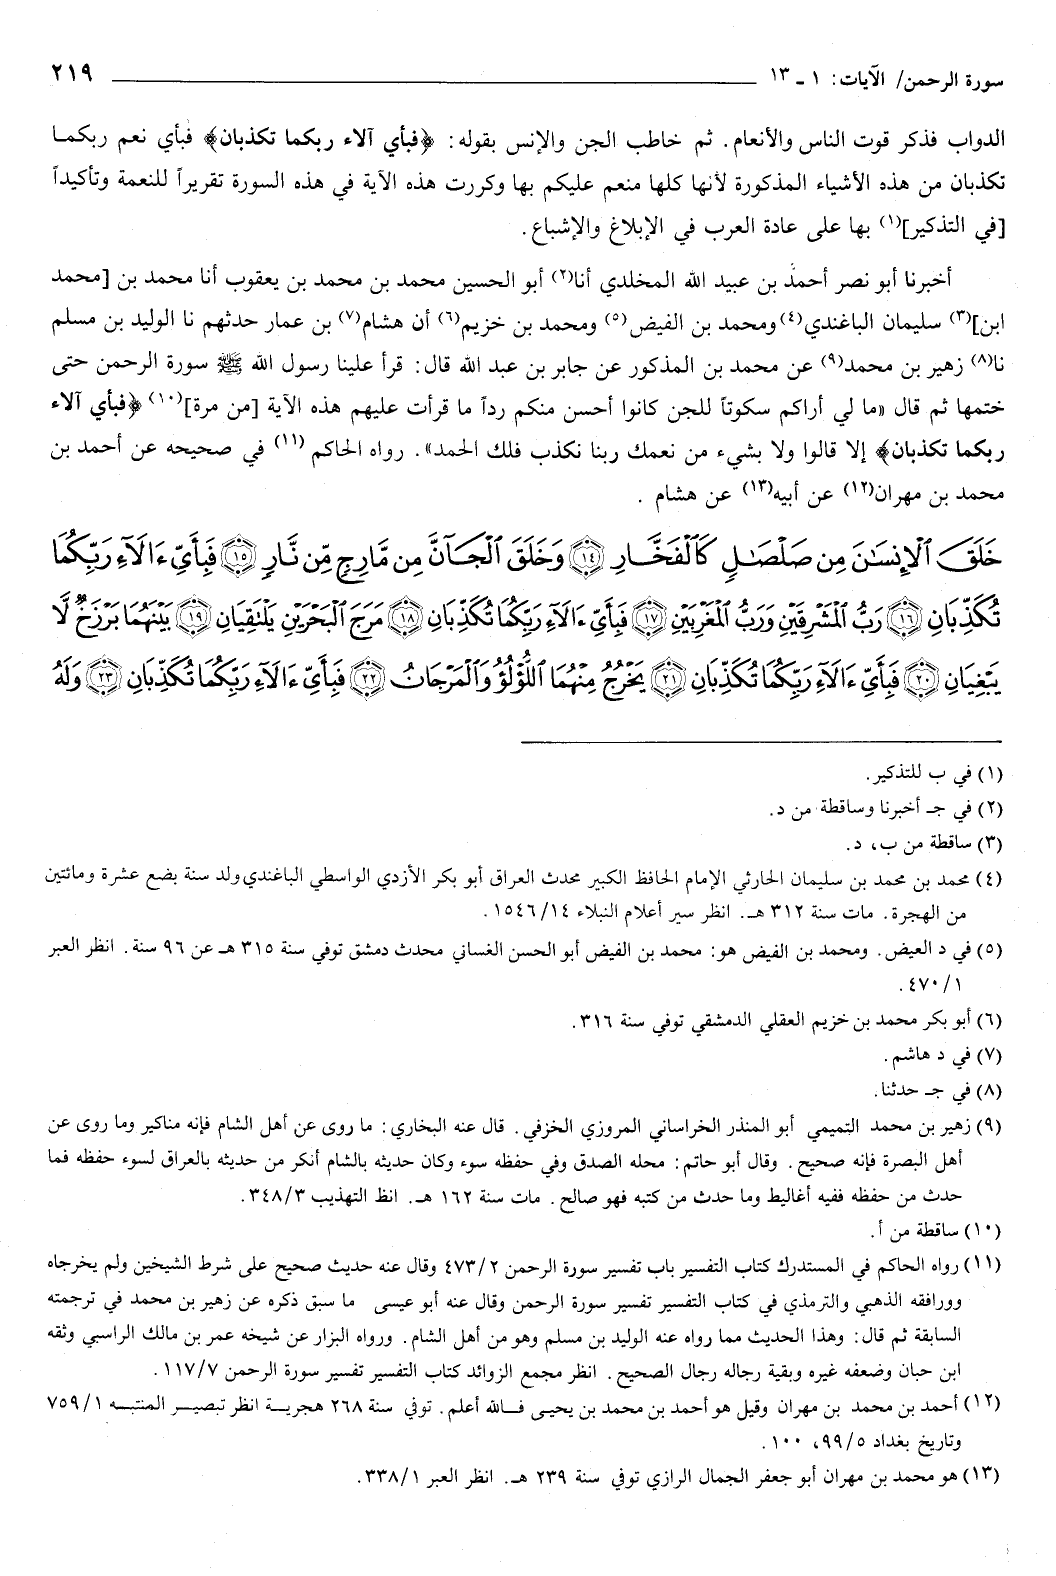 سورة الرحمن/ الآيات: ١ ـ ١٣ ٢١٩
الدواب فذكر قوت الناس والأنعام. ثم خاطب الجن والإنس بقوله: ﴿فبأي آلاء ربكما تكذبان﴾ فبأي نعم ربكما
تكذبان من هذه الأشياء المذكورة لأنها كلها منعم عليكم بها وكررت هذه الآية في هذه السورة تقريراً للنعمة وتأكيداً
[في التذكير](١) بها على عادة العرب في الإبلاغ والإشباع.
أخبرنا أبو نصر أحمد بن عبيد الله المخلدي أنا(٢) أبو الحسين محمد بن محمد بن يعقوب أنا محمد بن [محمد
ابن](٣) سليمان الباغندي(٤) ومحمد بن الفيض(٥) ومحمد بن خزيم(٦) أن هشام(٧) بن عمار حدثهم نا الوليد بن مسلم
نا(٨) زهير بن محمد(٩) عن محمد بن المذكور عن جابر بن عبد الله قال: قرأ علينا رسول الله ﷺ سورة الرحمن حتى
ختمها ثم قال «ما لي أراكم سكوتاً للجن كانوا أحسن منكم رداً ما قرأت عليهم هذه الآية [من مرة](١٠) ﴿فبأي آلاء
ربكما تكذبان﴾ إلا قالوا ولا بشيء من نعمك ربنا نكذب فلك الحمد». رواه الحاكم (١١) في صحيحه عن أحمد بن
محمد بن مهران(١٢) عن أبيه(١٣) عن هشام .
خَلَقَ ٱلْإِنسَٰنَ مِن صَلْصَٰلٍ كَٱلْفَخَّارِ ١٤ وَخَلَقَ ٱلْجَآنَّ مِن مَّارِجٍ مِّن نَّارٍ ١٥ فَبِأَيِّ ءَالَآءِ رَبِّكُمَا
تُكَذِّبَانِ ١٦ رَبُّ ٱلْمَشْرِقَيْنِ وَرَبُّ ٱلْمَغْرِبَيْنِ ١٧ فَبِأَيِّ ءَالَآءِ رَبِّكُمَا تُكَذِّبَانِ ١٨ مَرَجَ ٱلْبَحْرَيْنِ يَلْتَقِيَانِ ١٩ بَيْنَهُمَا بَرْزَخٌ لَّا
يَبْغِيَانِ ٢٠ فَبِأَيِّ ءَالَآءِ رَبِّكُمَا تُكَذِّبَانِ ٢١ يَخْرُجُ مِنْهُمَا ٱللُّؤْلُؤُ وَٱلْمَرْجَانُ ٢٢ فَبِأَيِّ ءَالَآءِ رَبِّكُمَا تُكَذِّبَانِ ٢٣ وَلَهُ
(١) في ب للتذكير.
(٢) في جـ أخبرنا وساقطة من د.
(٣) ساقطة من ب، د.
(٤) محمد بن محمد بن سليمان الحارثي الإمام الحافظ الكبير محدث العراق أبو بكر الأزدي الواسطي الباغندي ولد سنة بضع عشرة ومائتين
من الهجرة. مات سنة ٣١٢ هـ. انظر سير أعلام النبلاء ١٥٤٦/١٤.
(٥) في د العيض. ومحمد بن الفيض هو: محمد بن الفيض أبو الحسن الغساني محدث دمشق توفي سنة ٣١٥ هـ عن ٩٦ سنة. انظر العبر
٤٧٠/١.
(٦) أبو بكر محمد بن خزيم العقلي الدمشقي توفي سنة ٣١٦.
(٧) في د هاشم.
(٨) في جـ حدثنا.
(٩) زهير بن محمد التميمي أبو المنذر الخراساني المروزي الخزفي. قال عنه البخاري: ما روى عن أهل الشام فإنه مناكير وما روى عن
أهل البصرة فإنه صحيح. وقال أبو حاتم: محله الصدق وفي حفظه سوء وكان حديثه بالشام أنكر من حديثه بالعراق لسوء حفظه فما
حدث من حفظه ففيه أغاليط وما حدث من كتبه فهو صالح. مات سنة ١٦٢ هـ. انظ التهذيب ٣٤٨/٣.
(١٠) ساقطة من أ.
(١١) رواه الحاكم في المستدرك كتاب التفسير باب تفسير سورة الرحمن ٤٧٣/٢ وقال عنه حديث صحيح على شرط الشيخين ولم يخرجاه
وورافقه الذهبي والترمذي في كتاب التفسير تفسير سورة الرحمن وقال عنه أبو عيسى ما سبق ذكره عن زهير بن محمد في ترجمته
السابقة ثم قال: وهذا الحديث مما رواه عنه الوليد بن مسلم وهو من أهل الشام. ورواه البزار عن شيخه عمر بن مالك الراسبي وثقه
ابن حبان وضعفه غيره وبقية رجاله رجال الصحيح. انظر مجمع الزوائد كتاب التفسير تفسير سورة الرحمن ١١٧/٧.
(١٢) أحمد بن محمد بن مهران وقيل هو أحمد بن محمد بن يحيى فالله أعلم. توفي سنة ٢٦٨ هجرية انظر تبصير المنتبه ٧٥٩/١
وتاريخ بغداد ٩٩/٥، ١٠٠.
(١٣) هو محمد بن مهران أبو جعفر الجمال الرازي توفي سنة ٢٣٩ هـ. انظر العبر ٣٣٨/١.